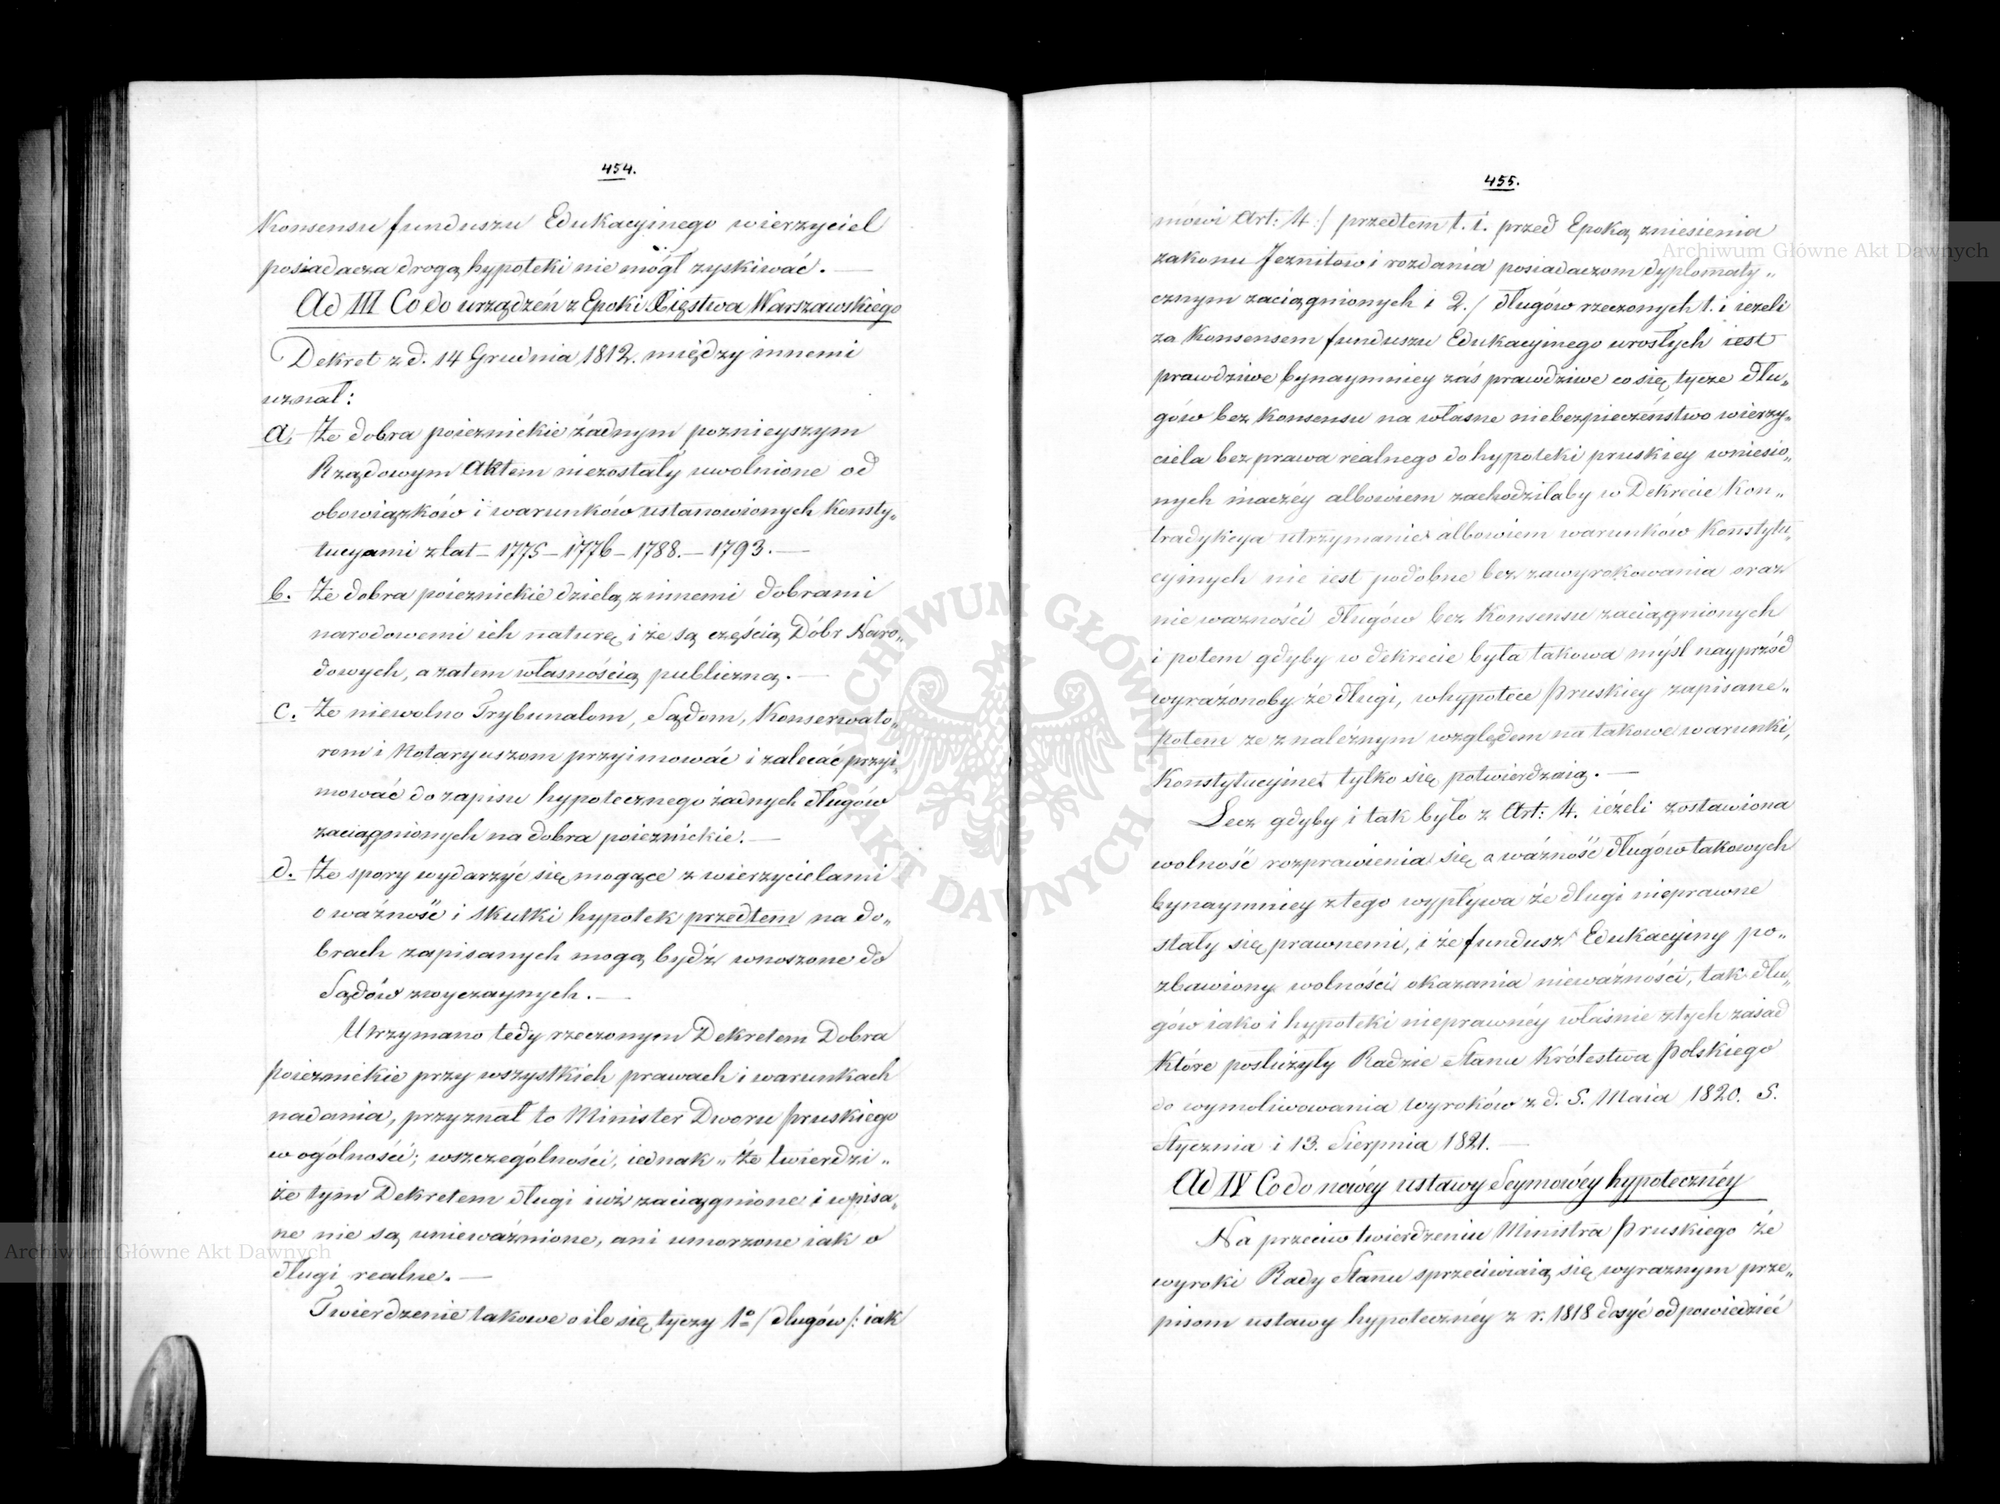 454.
Konsensu funduszu Edukacyinego wierzyciel
posiadacza drogą hypoteki nie mógł zyskiwać. —
Ad III Co do urządzeń z Epoki Xięstwa Warszawskiego
Dekret z d. 14 Grudnia 1812. między innemi
uznał:
a. Że dobra poiezuickie żadnym poznieyszym
Rządowym Aktem niezostały uwolnione od
obowiązków i warunków ustanowionych Konsty„
tucyami z lat – 1775 – 1776 – 1788. – 1793. —
b. Że dobra poiezuickie dzielą z innemi dobrami
narodowemi ich naturę i że są częścią Dóbr Naro„
dowych, a zatem własnością publiczną. —
c. Że niewolno Trybunałom, Sądom, Konserwato„
rom i Notaryuszom przyimować i zalecać przyi„
mować do zapisu hypotecznego żadnych długów
zaciągnionych na dobra poiezuickie. —
d. Że spory wydarzyć się mogące z wierzycielami
o ważność i skutki hypotek przedtem na do„
brach zapisanych mogą bydź wnoszone do
Sądów zwyczaynych. —
Utrzymano tedy rzeczonym Dekretem Dobra
poiezuickie przy wszystkich prawach i warunkach
nadania, przyznał to Minister Dworu pruskiego
w ogólności; wszczególności, iednak „ że twierdzi „
że tym Dekretem długi iuż zaciągnione i wpisa„
ne nie są unieważnione, ani umorzone iak o
długi realne. —
Twierdzenie takowe o ile się tyczy 1º / długów /: iak
455.
mówi Art: 4 / przedtem t. i. przed Epoką zniesienia
zakonu Jezuitow i rozdania posiadaczom dyplomaty„
cznym zaciągnionych i 2. / długów rzeczonych t. i ieżeli
za Konsensem funduszu Edukacyinego urosłych iest
prawdziwe bynaymniey zaś prawdziwe co się tycze dłu„
gów bez Konsensu na własne niebezpieczeństwo wierzy„
ciela bez prawa realnego do hypoteki pruskiey wniesio„
nych inaczéy albowiem zachodziłaby w Dekrecie Kon„
tradykcya utrzymanie albowiem warunków Konstytu„
cyinych nie iest podobne bez zawyrokowania oraz
nie ważność długów bez Konsensu zaciągnionych
i potem gdyby w dekrecie była takowa myśl nayprzód
wyrażonoby że długi, w hypotece pruskiey zapisane„
potem że z należnym względem na takowe warunki,
Konstytucyine tylko się potwierdzaią. —
Lecz gdyby i tak było z Art: 4. ieżeli zostawiona
wolność rozprawienia się o ważność długów takowych
bynaymniey z tego wypływa że długi nieprawne
stały się prawnemi, i że fundusz Edukacyiny po„
zbawiony wolności okazania nieważności, tak dłu„
gów iako i hypoteki nieprawnéy właśnie z tych zasad
które posłużyły Radzie Stanu Królestwa Polskiego
do wymotiwowania wyroków z d. 5. Maia 1820. 5.
Stycznia i 13. Sierpnia 1821. —
Ad IV Co do nowéy ustawy Seymowéy hypotecznéy
Na przeciw twierdzeniu Ministra Pruskiego że
wyroki Rady Stanu sprzeciwiaią się wyraznym prze„
pisom ustawy hypotecznéy z r. 1818 dosyć odpowiedzieć
Archiwum Główne Akt Dawnych
Archiwum Główne Akt Dawnych
ARCHIWUM GŁÓWNE AKT DAWNYCH